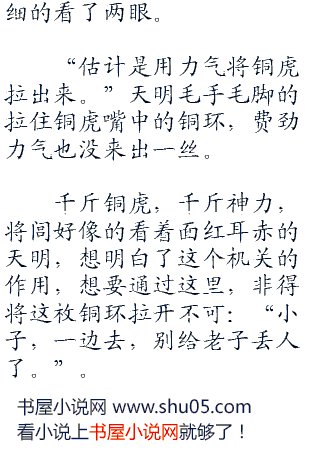 细的看了两眼。
“估计是用力气将铜虎
拉出来。”天明毛手毛脚的
拉住铜虎嘴中的铜环，费劲
力气也没来出一丝。
千斤铜虎，千斤神力，
将闾好像的看着面红耳赤的
天明，想明白了这个机关的
作用，想要通过这里，非得
将这枚铜环拉开不可：“小
子，一边去，别给老子丢人
了。”。
书屋小说网 www.shu05.com
看小说上书屋小说网就够了！